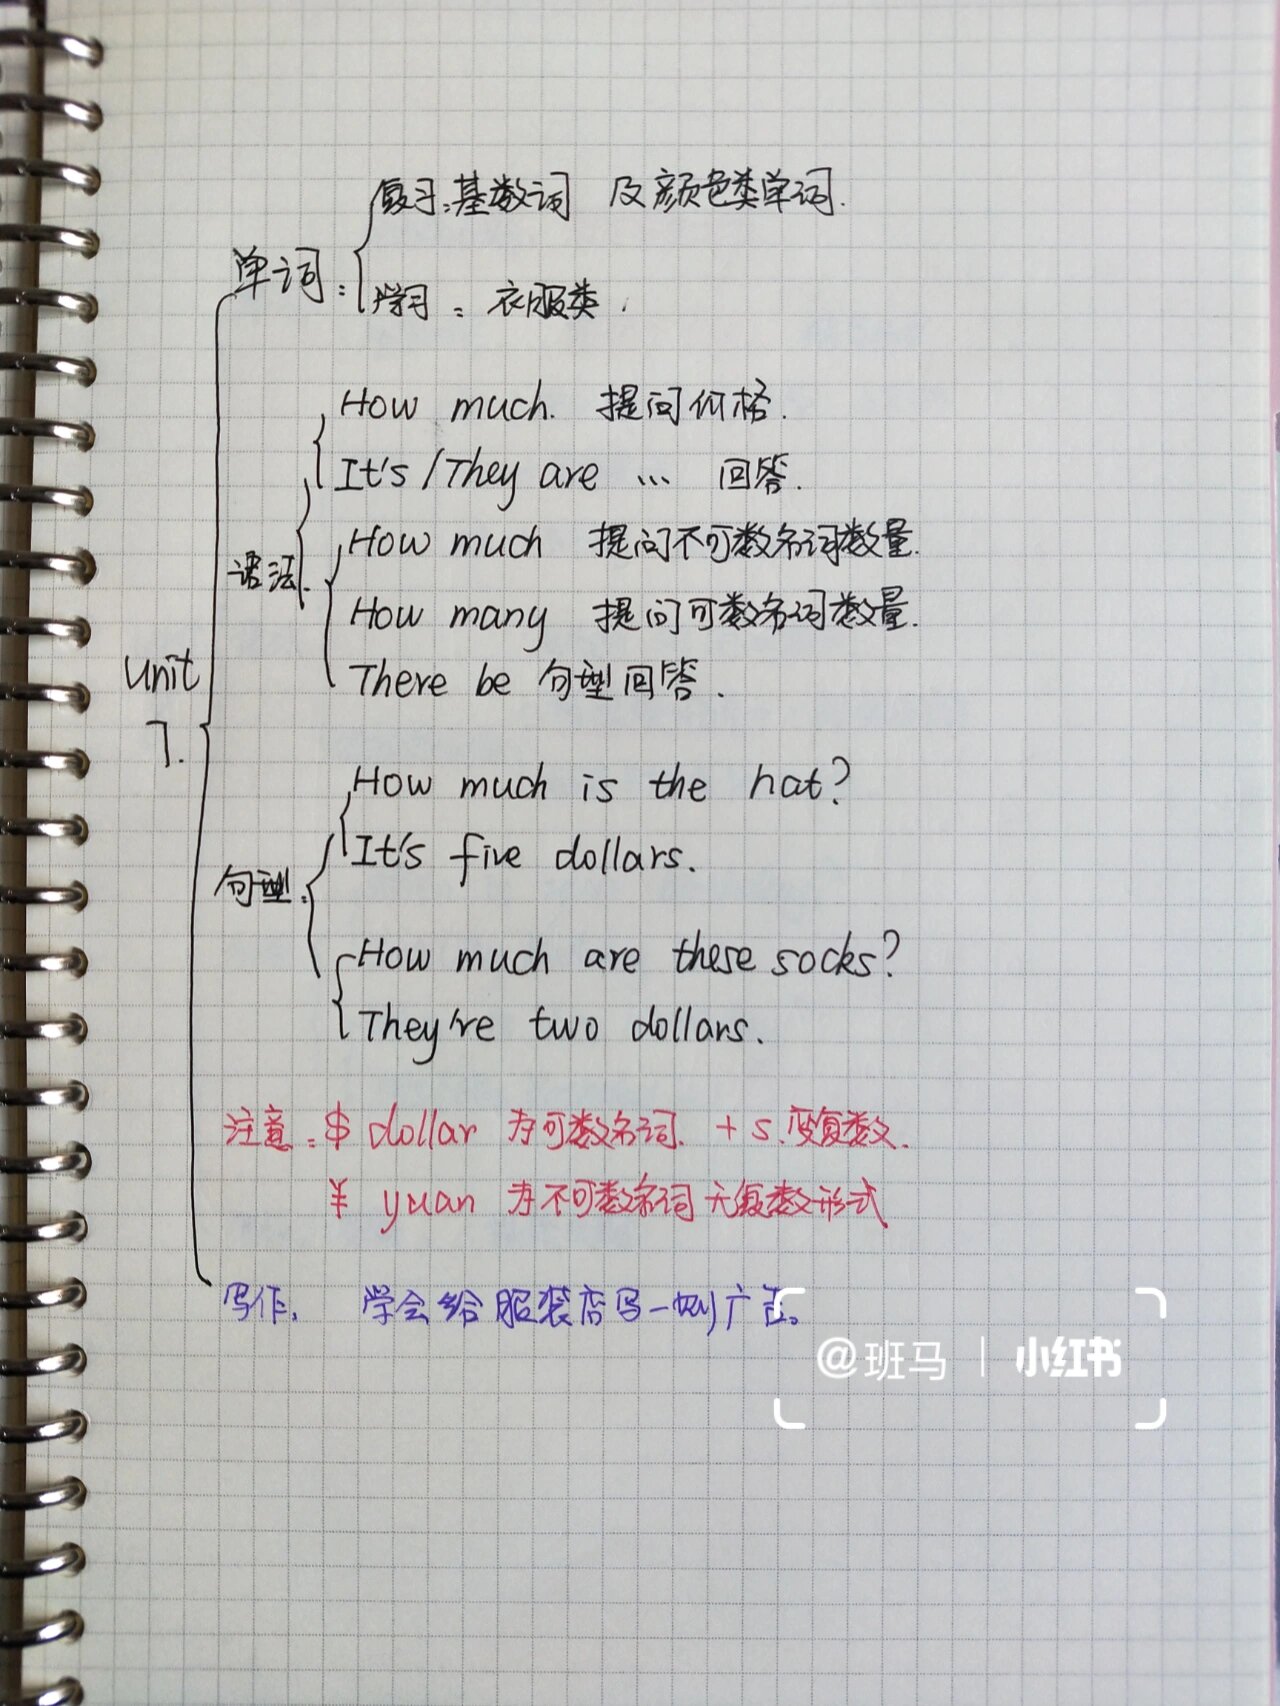 复习:基数词 及颜色类单词.
单词:
学习: 衣服类.
How much. 提问价格.
It's / They are ... 回答.
语法.
How much 提问不可数名词数量.
How many 提问可数名词数量.
There be 句型回答.
Unit
7.
How much is the hat?
It's five dollars.
句型:
How much are these socks?
They're two dollars.
注意:$ dollar 为可数名词. + s.变复数.
¥ yuan 为不可数名词 无复数形式
写作: 学会给服装店写一则广告。
@班马 | 小红书